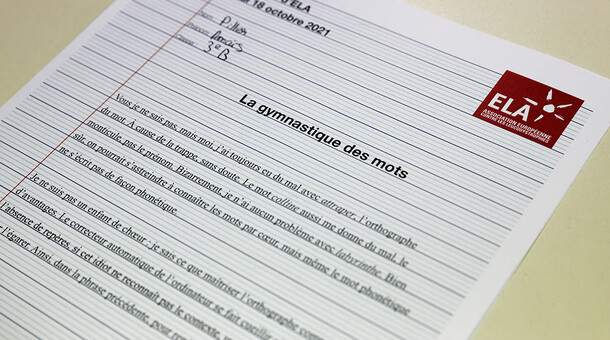 d'ELA
18 octobre 2021
3e B
ELA
ASSOCIATION EUROPÉENNE
CONTRE LES LEUCODYSTROPHIES
La gymnastique des mots
Vous je ne sais pas, mais moi, j'ai toujours eu du mal avec attraper, l'orthographe
du mot. À cause de la trappe, sans doute. Le mot colline aussi me donne du mal, le
monticule, pas le prénom. Bizarrement, je n'ai aucun problème avec labyrinthe. Bien
sûr, on pourrait s'astreindre à connaître les mots par cœur, mais même le mot phonétique
ne s'écrit pas de façon phonétique.
Je ne suis pas un enfant de chœur : je sais ce que maîtriser l'orthographe
d'avantages. Le correcteur automatique de l'ordinateur se fait cueillir
l'absence de repères, si cet idiot ne reconnaît pas le contexte,
l'égarer. Ainsi, dans la phrase précédente, pour